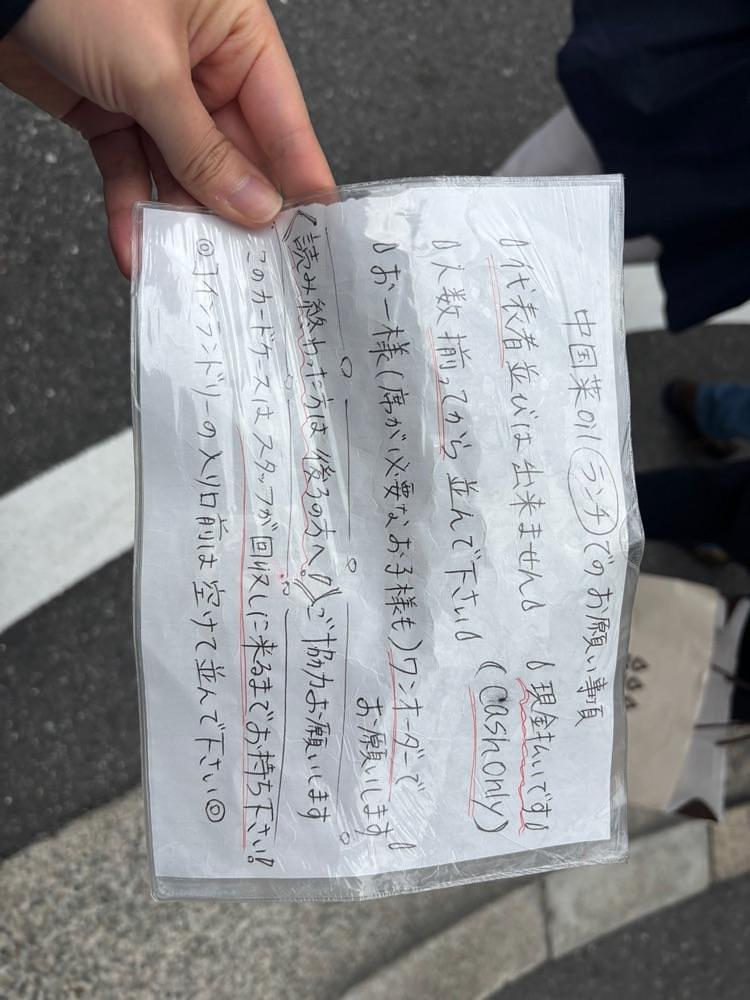 中国菜oil ランチでのお願い事項
!代表者並びは出来ません! !現金払いです!
!人数揃ってから並んで下さい! (Cash only)
!お一様(席が必要なお子様も)ワンオーダーで
お願いします!
《読み終わった方は後ろの方へ!!》ご協力お願いします
このカードケースはスタッフが回収しに来るまでお持ち下さい!
◎コインランドリーの入り口前は空けて並んで下さい◎